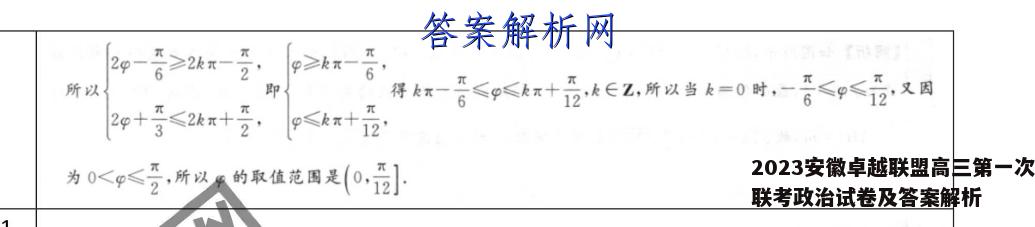 答案解析网
所以{2φ-π/6≥2kπ-π/2, 2φ+π/3≤2kπ+π/2, 即{φ≥kπ-π/6, φ≤kπ+π/12, 得 kπ-π/6≤φ≤kπ+π/12,k∈Z,所以当 k=0 时,-π/6≤φ≤π/12,又因
为 0<φ≤π/2,所以 φ 的取值范围是(0,π/12].
2023安徽卓越联盟高三第一次
联考政治试卷及答案解析
1